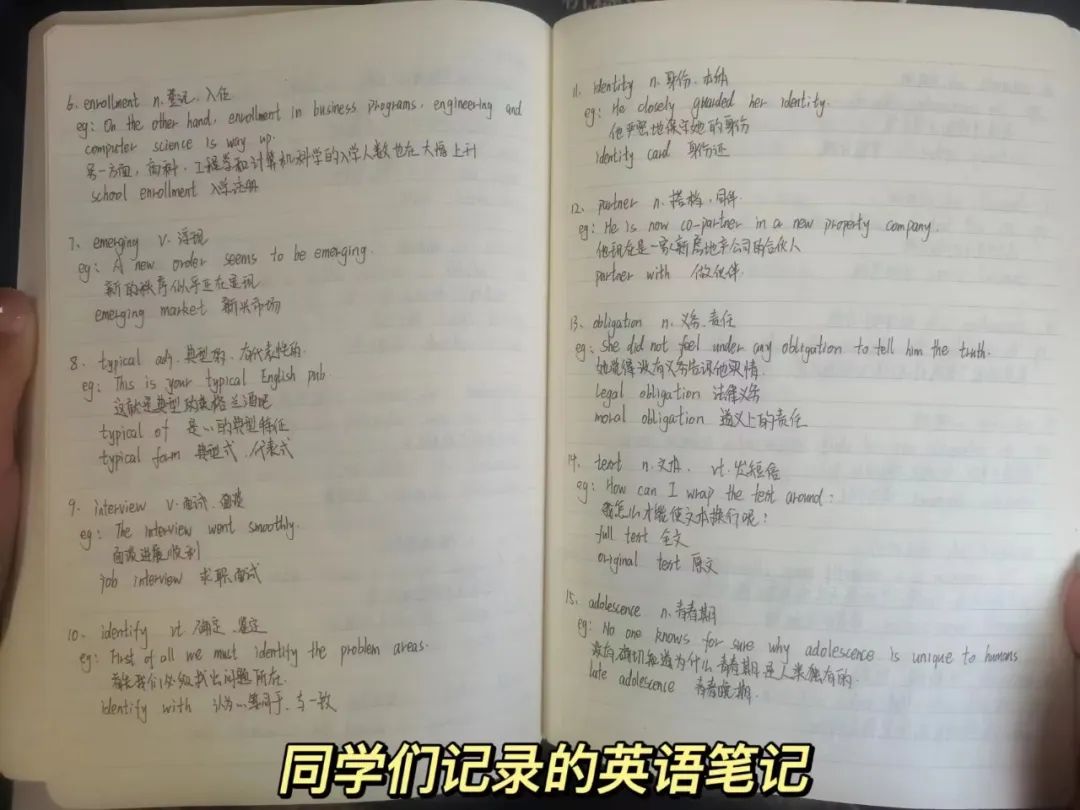 6. enrollment n.登记、入伍
eg: On the other hand, enrollment in business programs, engineering and
computer science is way up.
另一方面，商科，工程学和计算机科学的入学人数也在大幅上升
school enrollment 入学注册
7. emerging v. 浮现
eg: A new order seems to be emerging.
新的秩序似乎正在呈现
emerging market 新兴市场
8. typical adj. 典型的、有代表性的.
eg: This is your typical English pub.
这就是典型的英格兰酒吧
typical of 是…的典型特征
typical form 典型式、代表式
9. interview v. 面试、面谈
eg: The interview went smoothly.
面谈进展顺利
job interview 求职面试
10. identify vt. 确定、鉴定
eg: First of all we must identify the problem areas.
首先我们必须找出问题所在.
identify with 认为…等同于、与一致
11. identity n. 身份、本体
eg: He closely guarded her identity.
他严密地保守她的身份
identity card 身份证
12. partner n. 搭档，同伴.
eg: He is now co-partner in a new property company.
他现在是一家新房地产公司的合伙人
partner with 做伙伴.
13. obligation n. 义务、责任
eg: She did not feel under any obligation to tell him the truth.
她觉得没有义务告诉他实情.
legal obligation 法律义务
moral obligation 道义上的责任
14. text n. 文本、 vt. 发短信
eg: How can I wrap the text around:
我怎么才能使文本换行呢:
full text 全文
original text 原文
15. adolescence n. 青春期
eg: No one knows for sure why adolescence is unique to humans
没有确切知道为什么青春期是人类独有的.
late adolescence 青春晚期.
同学们记录的英语笔记